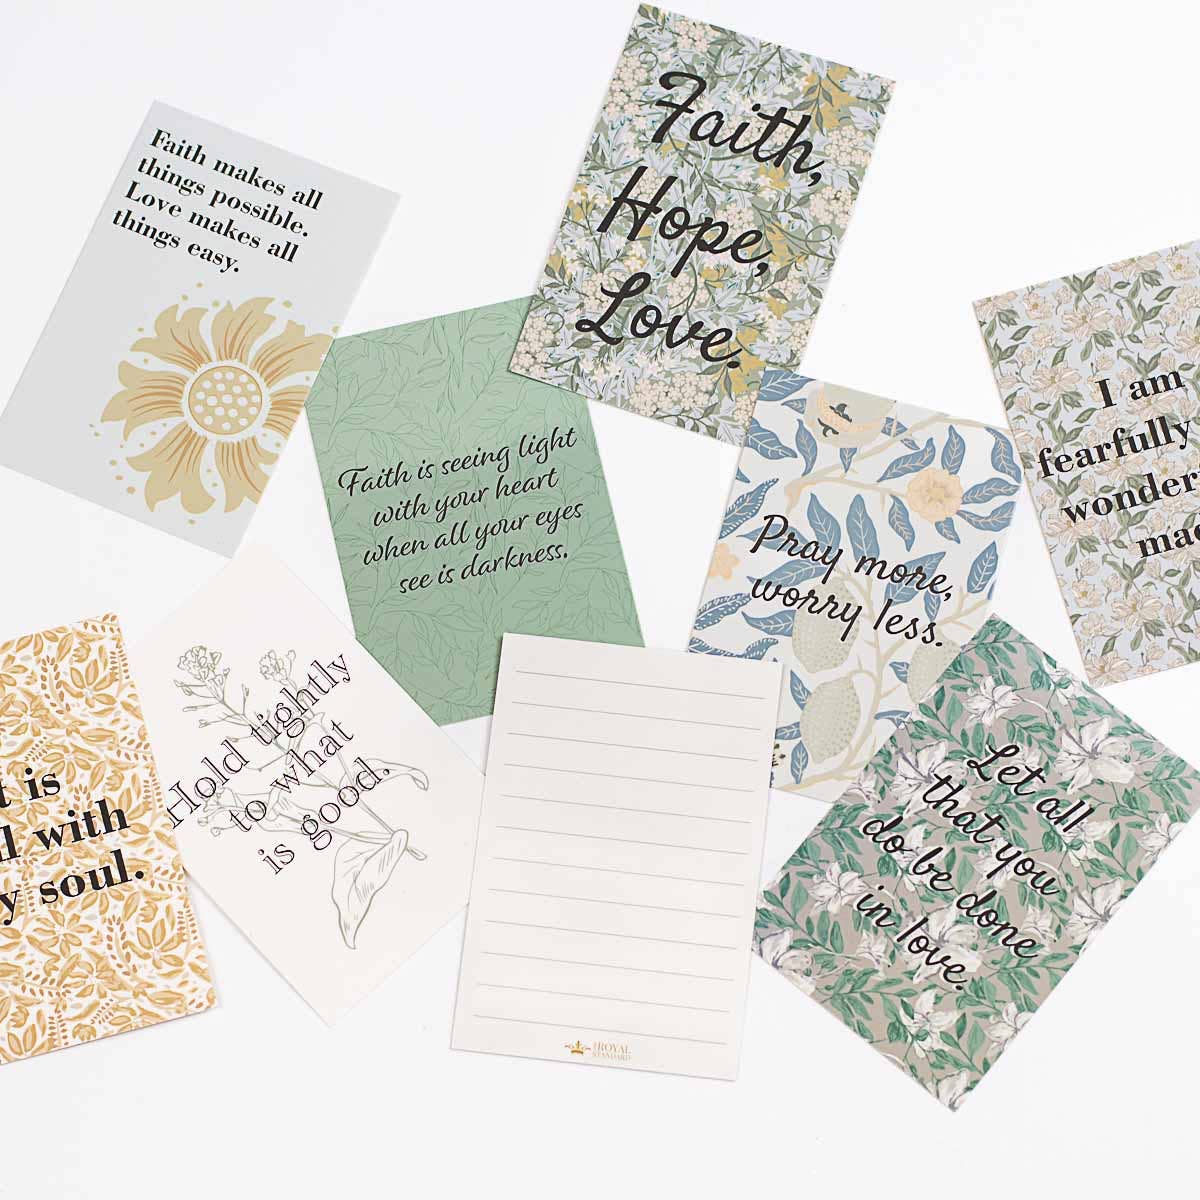 Faith makes all
things possible.
Love makes all
things easy.
Faith,
Hope,
Love.
Faith is seeing light
with your heart
when all your eyes
see is darkness.
Pray more,
worry less.
I am
fearfully
is
with
soul.
Hold tightly
to what
is good.
Let all
that you
do be done
in love.
THE ROYAL
STANDARD